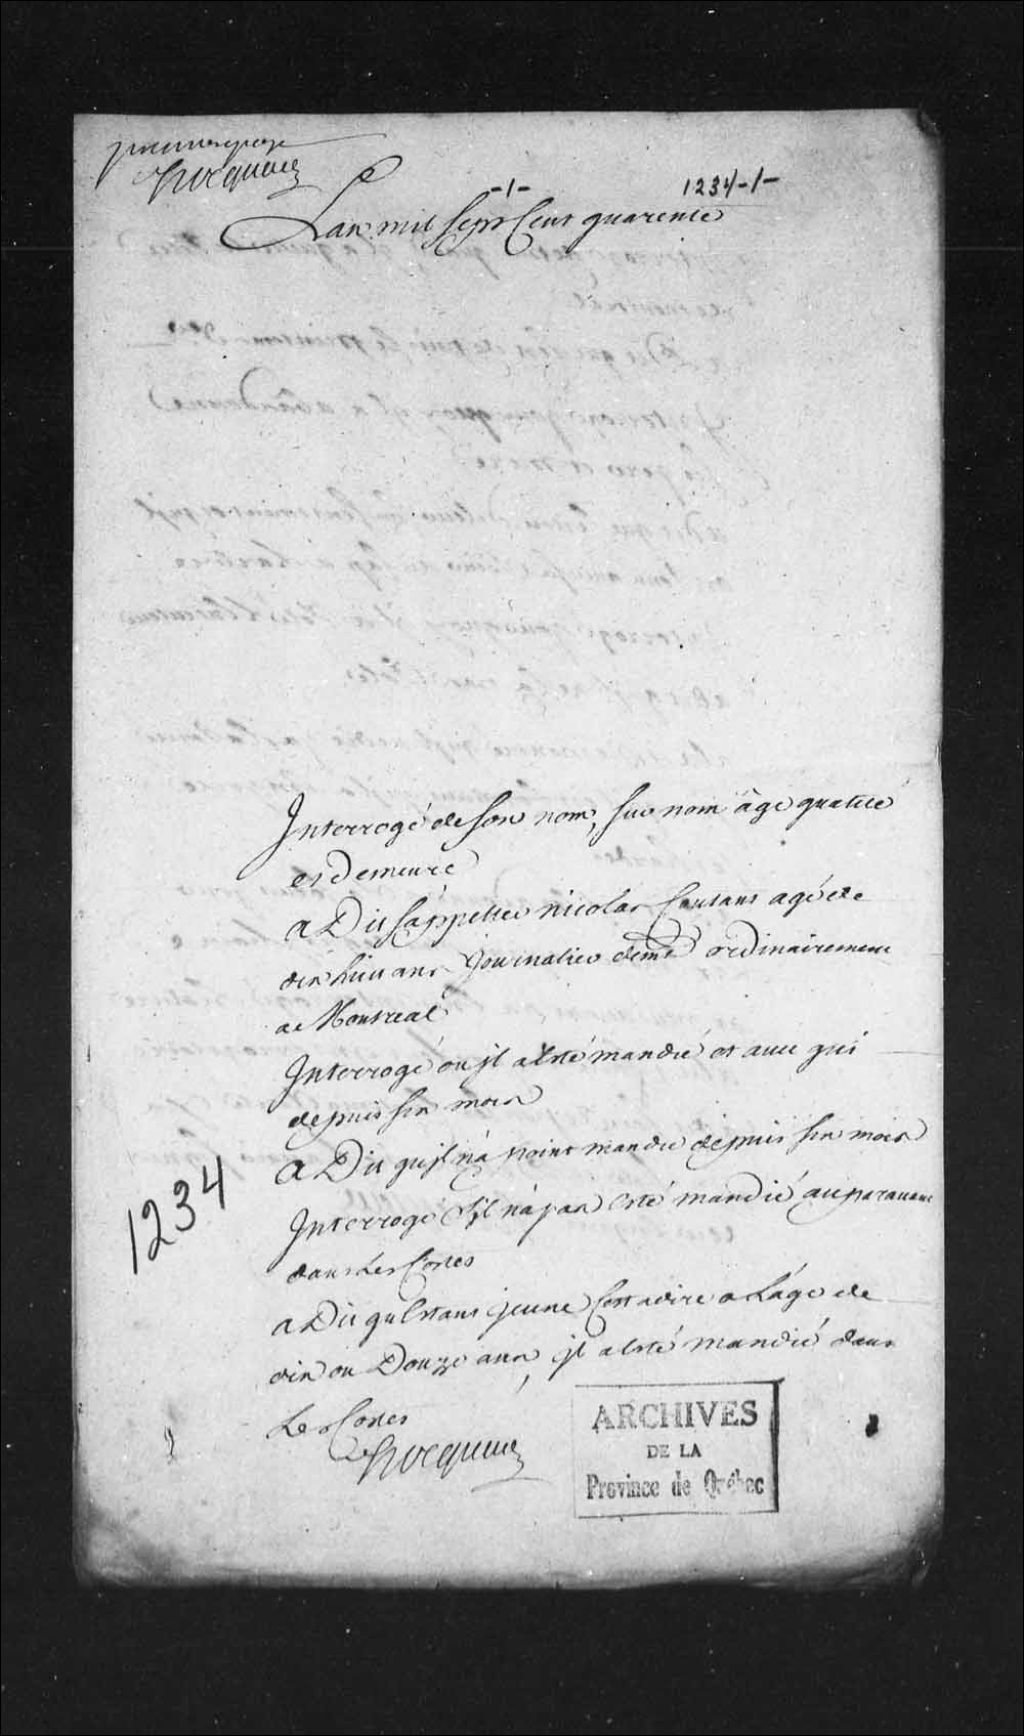 premiere page
Hocquart
-1-
1234-1-
Lan mil sept Cent quarente
Interrogé de son nom, sur nom âge qualité
et Demeure
a Dit s'appeller nicolas Coutant agé de
dix huit ans Journalier demt ordinairement
a Montreal
Interrogé ou jl a Esté mandié et avec qui
depuis six mois
a Dit qujl n'a point mandié depuis six mois
Interrogé S'jl n'a pas Esté mandié auparavant
dans Les Costes
a Dit qu'Estant jeune C'est a dire a L'age de
dix ou Douze ans, jl a Esté mandié dans
Les Costes
Hocquart
1234
ARCHIVES
DE LA
Province de Québec